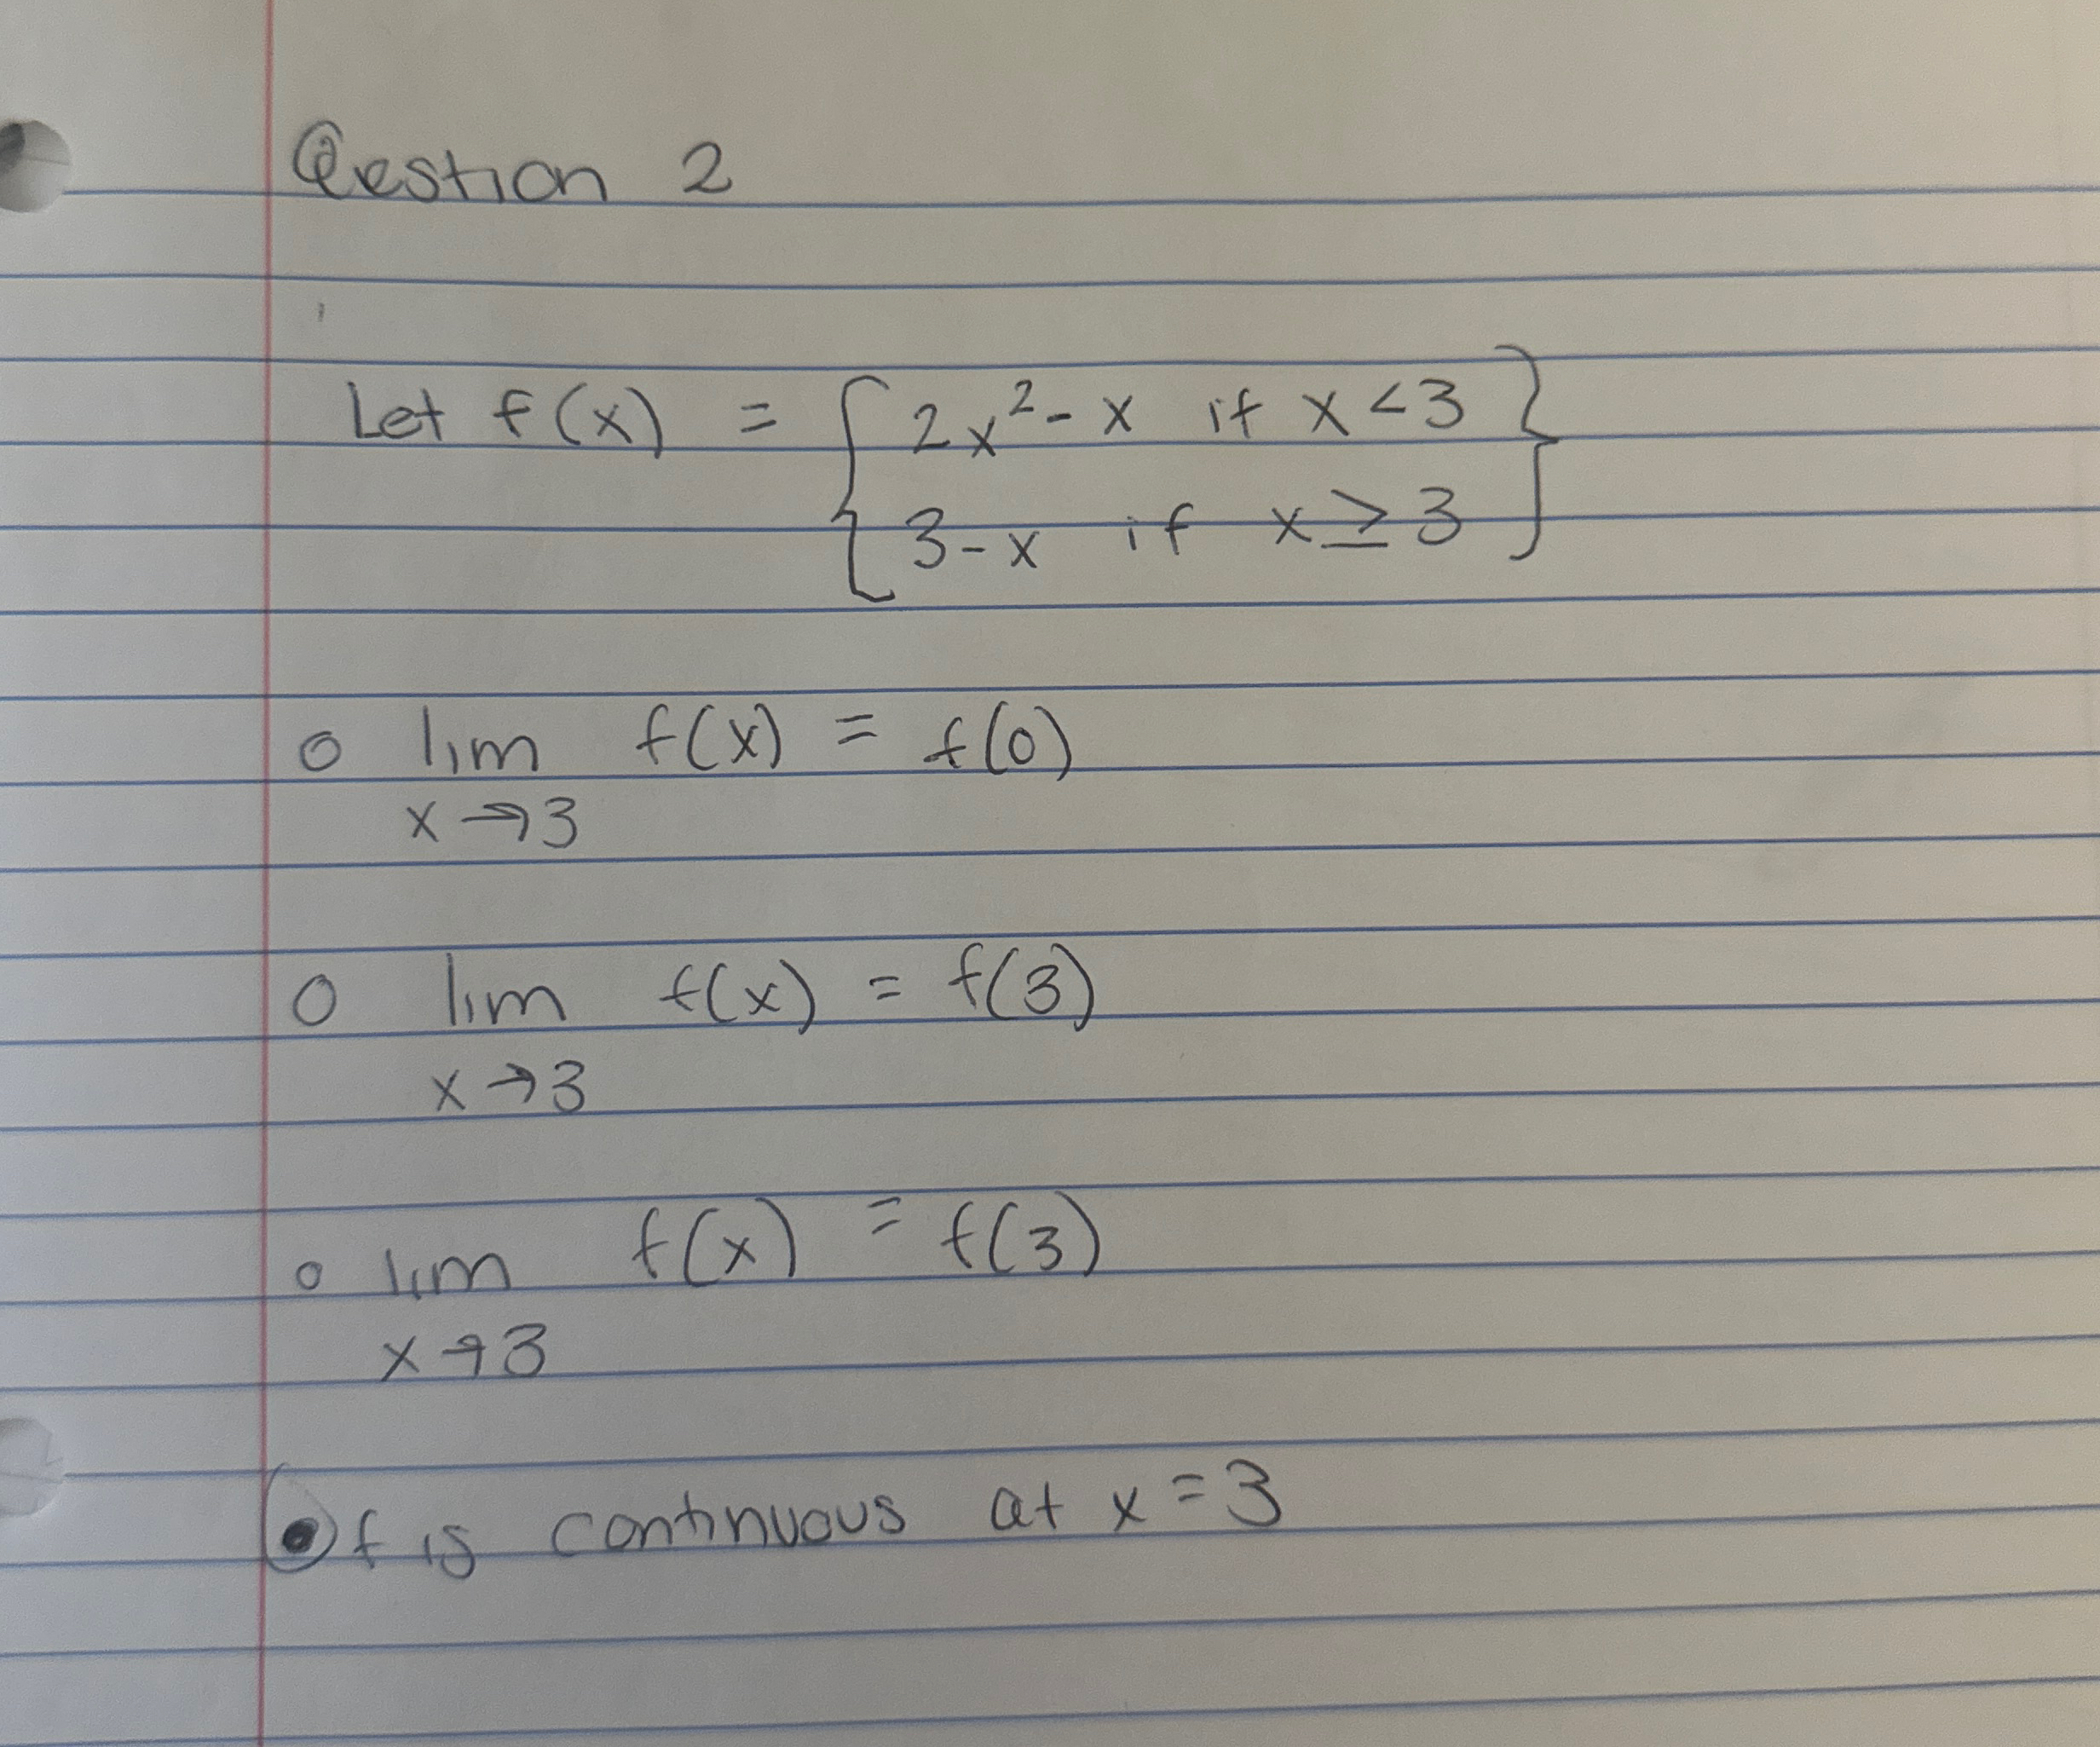 Qestion 2
Let f(x) = { 2x² - x if x < 3 }
3 - x if x ≥ 3
○ lim f(x) = f(0)
x → 3
○ lim f(x) = f(3)
x → 3
○ lim f(x) = f(3)
x → 3
● f is continuous at x = 3